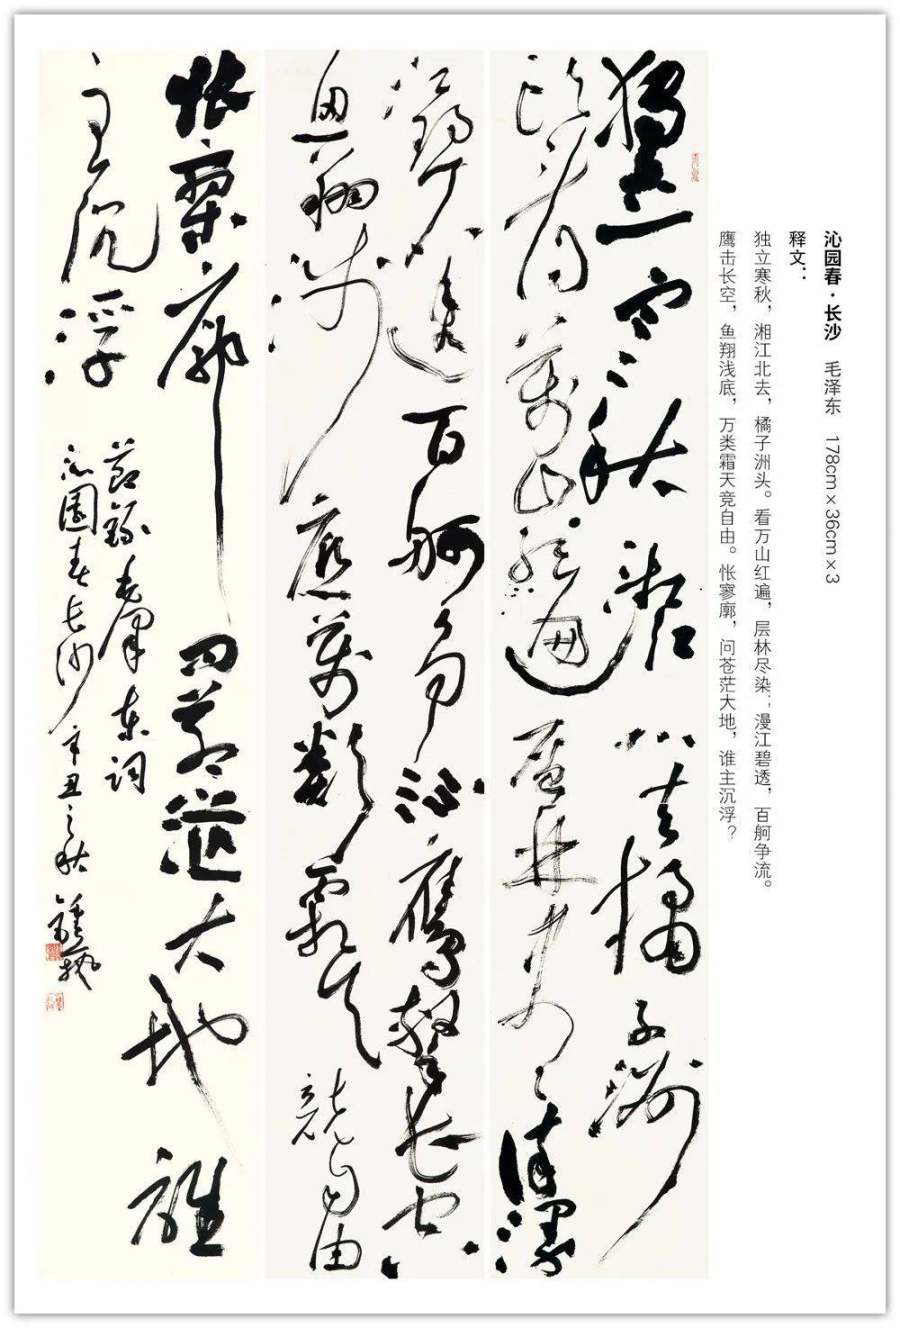 沁园春·长沙 毛泽东 178cm×36cm×3
释文：
独立寒秋，湘江北去，橘子洲头。看万山红遍，层林尽染；漫江碧透，百舸争流。
鹰击长空，鱼翔浅底，万类霜天竞自由。怅寥廓，问苍茫大地，谁主沉浮？
獨立寒秋湘江北去橘子洲
頭看萬山紅遍層林盡染漫
江碧透百舸爭流鷹擊長空
魚翔淺底萬類霜天競自由
悵寥廓問蒼茫大地誰
主沉浮
節錄毛澤東詞
沁園春長沙辛丑之秋